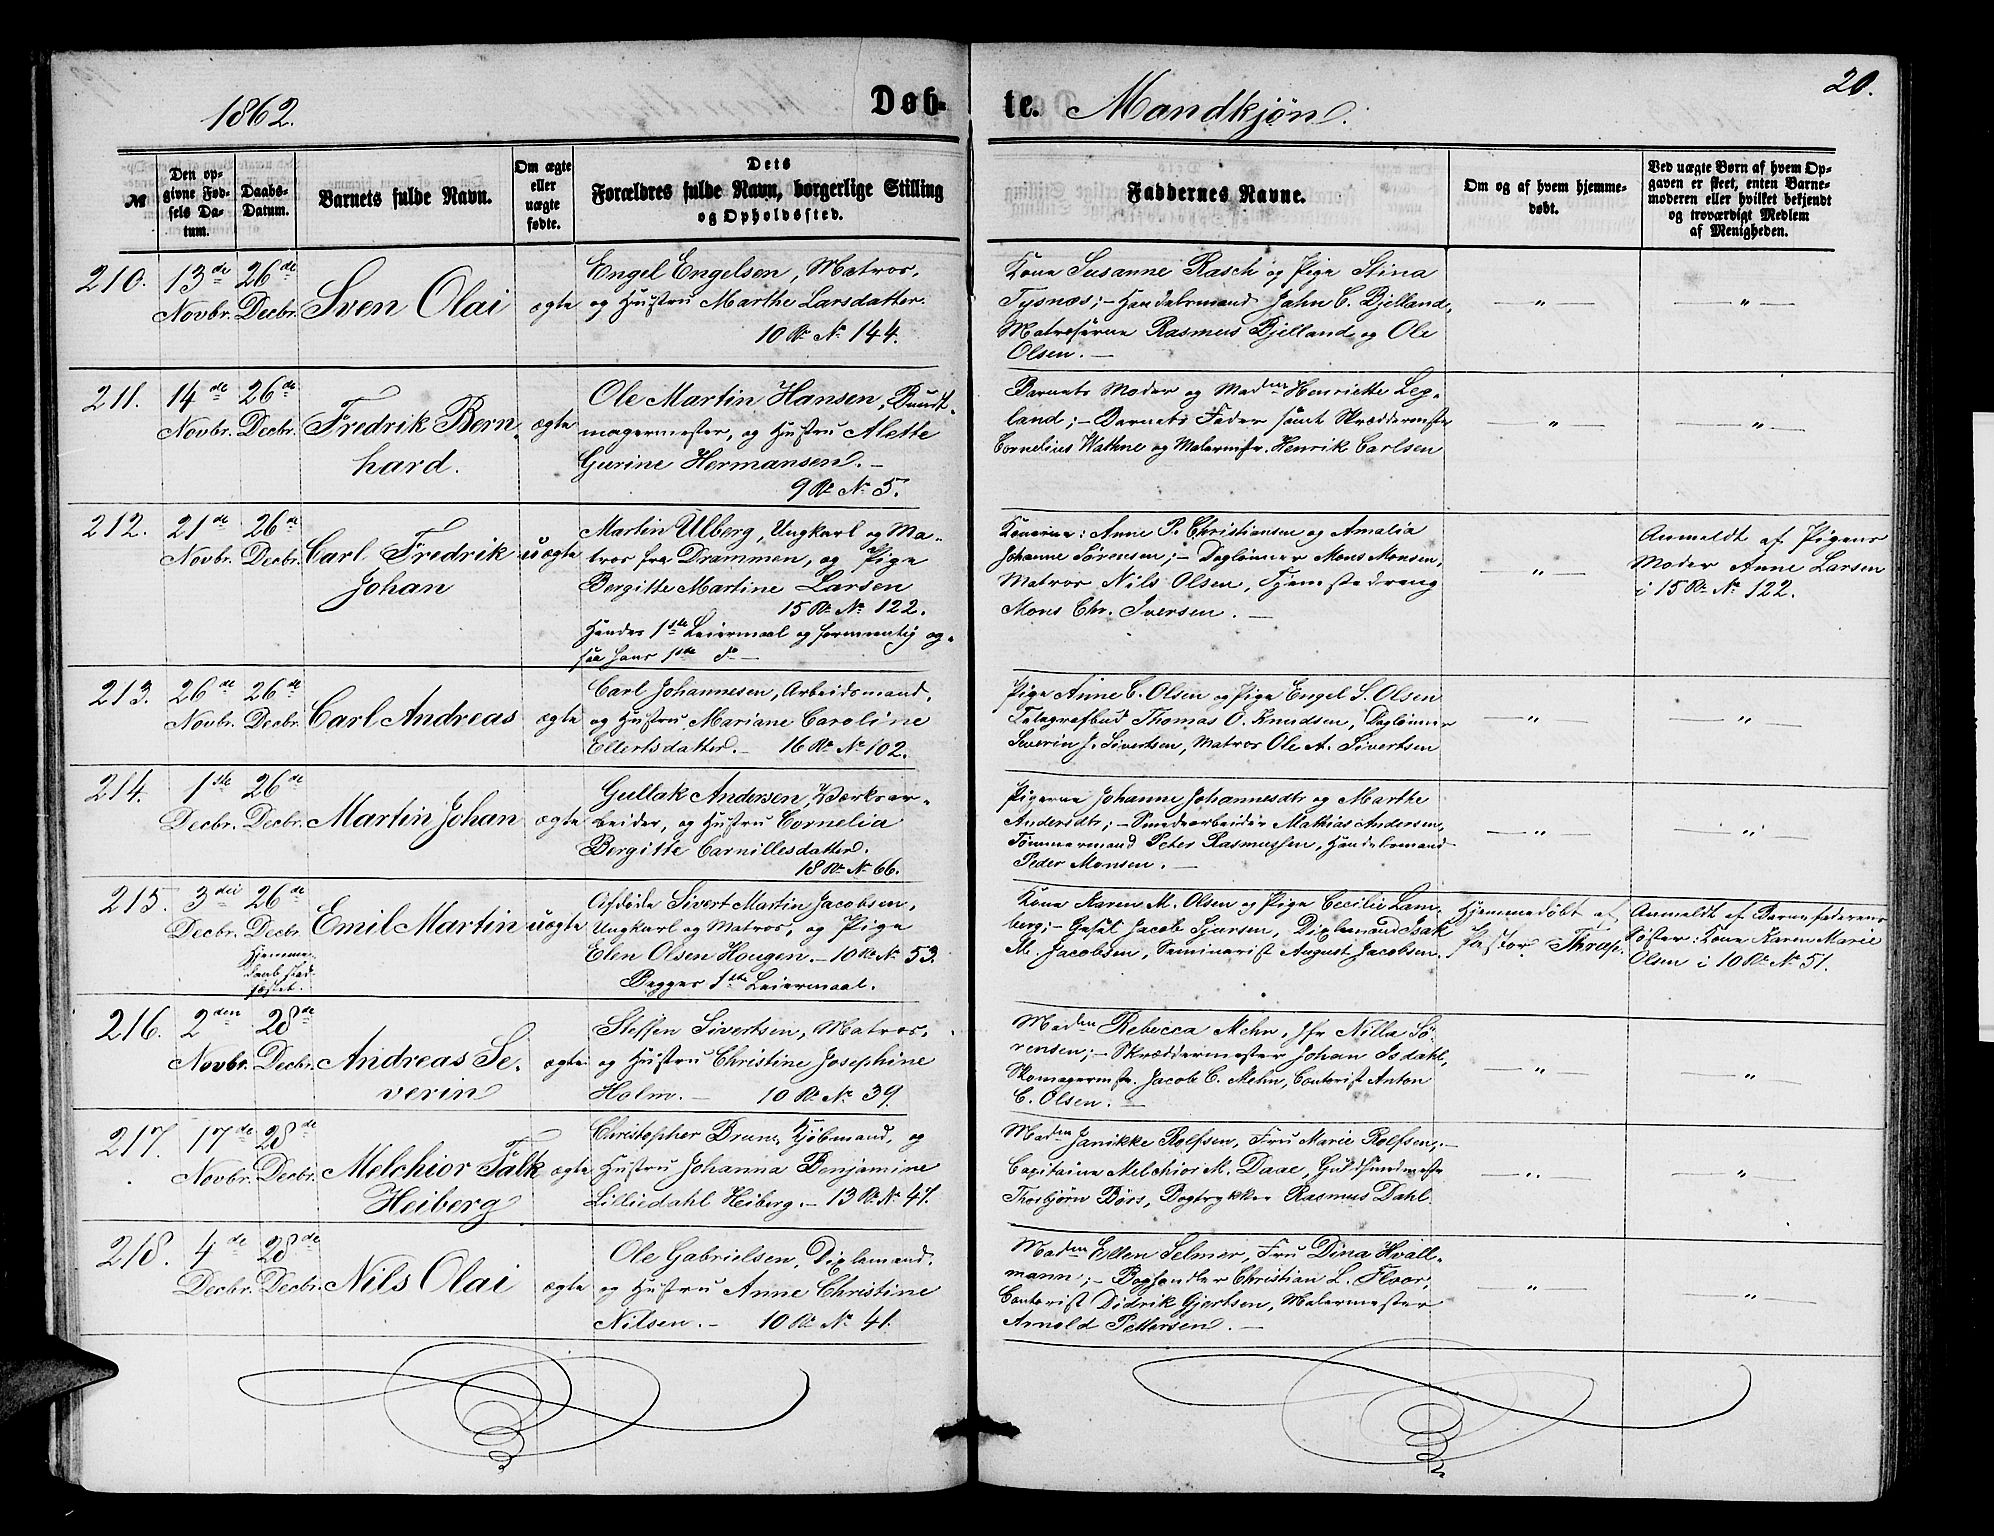 1862.
Døb-
te. Mandkjøn.
20.
№
Den op-
givne Fød-
sels Da-
tum.
Daabs-
Datum.
Barnets fulde Navn.
Om ægte
eller
uægte
fødte.
Dets
Forældres fulde Navn, borgerlige Stilling
og Opholdssted.
Faddernes Navne.
Om og af hvem hjemme-
døbt.
Ved uægte Børn af hvem Op-
gaven er skeet, enten Barne-
moderen eller hvilket bekjendt
og troværdigt Medlem
af Menigheden.
210. 13de Novbr. 26de Decbr. Sven Olai ægte
Engel Engelsen, Matros,
og Hustru Marthe Larsdatter.
10 Rd. No 144.
Kone Susanne Rasch og Pige Stina
Tysnæs; – Handelsmand Jahn C. Bjelland,
Matroserne Rasmus Bjelland og Ole
Olsen. –
— " —
— " —
211. 14de Novbr. 26de Decbr. Fredrik Bern-
hard. ægte
Ole Martin Hansen, Bundt-
magermester, og Hustru Alette
Gurine Hermansen. –
9 Rd. No 5.
Barnets Moder og Madm Henriette Leg-
land; – Barnets Fader samt Skræddermstr
Cornelius Wathne og Malermstr. Henrik Carlsen
— " —
— " —
212. 21de Novbr. 26de Decbr. Carl Fredrik
Johan uægte
Martin Ulberg, Ungkarl og Ma-
tros fra Drammen, og Pige
Bergitte Martine Larsen
15 Rd. No 122.
Hendes 1ste Leiermaal og formentlig og-
saa hans 1ste do –
Konerne: Anne P. Christiansen og Amalia
Johanne Sørensen; – Dagleiner Mons Monsen,
Matros Nils Olsen, Tjenestedreng
Mons Chr. Iversen. –
— " —
Anmeldt af Pigens
Moder Anne Larsen
i 15 Rd. No 122.
213. 26de Novbr. 26de Decbr. Carl Andreas ægte
Carl Johannesen, Arbeidsmand,
og Hustru Mariane Caroline
Ellertsdatter. – 16 Rd. No 102.
Pige Anne C. Olsen og Pige Engel S. Olsen
Telegrafbud Thomas O. Knudsen, Dagleiner
Severin J. Sivertsen, Matros Ole A. Sivertsen
— " —
— " —
214. 1ste Decbr. 26de Decbr. Martin Johan ægte
Gullak Andersen, Værksar-
beider, og Hustru Cornelia
Bergitte Carnillesdatter.
18 Rd. No 66.
Pigerne Johanne Johannesdtr og Marthe
Andersdtr; – Smedearbeider Mathias Andersen,
Tømmermand Peter Rasmussen, Handelsmand
Peder Monsen. –
— " —
— " —
215. 3die Decbr. 26de Decbr. Emil Martin uægte
Hjemme-
daab stad-
fæstet.
Afdøde Sivert Martin Jacobsen,
Ungkarl og Matros, og Pige
Elen Olsen Hougen. – 10 Rd. No 53.
Begges 1ste Leiermaal.
Kone Karen M. Olsen og Pige Cecilie Lam-
berg; – Gesel Jacob Sjursen, Diplemand Isak
M. Jacobsen, Seminarist August Jacobsen.
Hjemmedøbt af
Pastor Thrap.
Anmeldt af Barnefaderens
Søster: Kone Karen Marie
Olsen i 10 Rd. No 51.
216. 2den Novbr. 28de Decbr. Andreas Se-
verin ægte
Steffen Sivertsen, Matros,
og Hustru Christine Josephine
Holm. – 10 Rd. No 39.
Madm Rebecca Mehn, Jfr Nilla Sö-
rensen; – Skræddermester Johan Isdahl,
Skomagermstr. Jacob C. Mehn, Contorist Anton
C. Olsen. –
— " —
— " —
217. 17de Novbr. 28de Decbr. Melchior Falk
Heiberg ægte
Christopher Brun, Kjøbmand, og
Hustru Johanna Benjamine
Lilliedahl Heiberg. – 13 Rd. No 47.
Madm Janikke Rolfsen, Fru Marie Rolfsen; –
Capitaine Melchior M. Daae, Guldsmedmester
Thorbjørn Børs, Bogtrykker Rasmus Dahl.
— " —
— " —
218. 4de Decbr. 28de Decbr. Nils Olai ægte
Ole Gabrielsen, Diplemand,
og Hustru Anne Christine
Nilsen. – 10 Rd. No 41.
Madm Ellen Selmer, Fru Dina Hvall-
mann; – Boghandler Christian L. Floor,
Contorist Didrik Gjertsen, Malermester
Arnold Pettersen. –
— " —
— " —